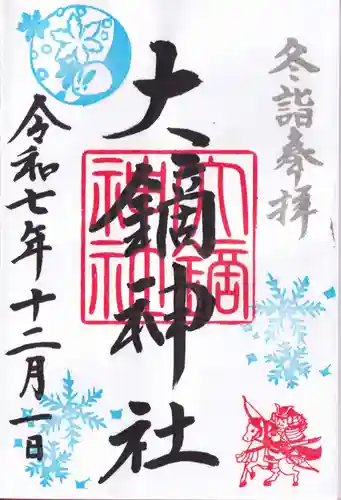 冬詣奉拝
大鏑神社
大鏑神社
令和七年十二月一日